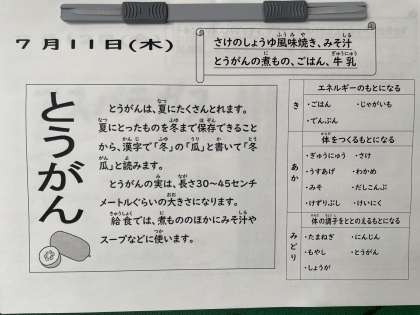 7月11日(木)
さけのしょうゆ風味焼き、みそ汁
とうがんの煮もの、ごはん、牛乳
とうがん
とうがんは、夏にたくさんとれます。
夏にとったものを冬まで保存できること
から、漢字で「冬」の「瓜」と書いて「冬
瓜」と読みます。
とうがんの実は、長さ30~45センチ
メートルぐらいの大きさになります。
給食では、煮もののほかにみそ汁や
スープなどに使います。
き
エネルギーのもとになる
・ごはん ・じゃがいも
・でんぷん
あか
体をつくるもとになる
・ぎゅうにゅう ・さけ
・うすあげ ・わかめ
・みそ ・だしこんぶ
・けずりぶし ・けいにく
みどり
体の調子をととのえるもとになる
・たまねぎ ・にんじん
・もやし ・とうがん
・しょうが